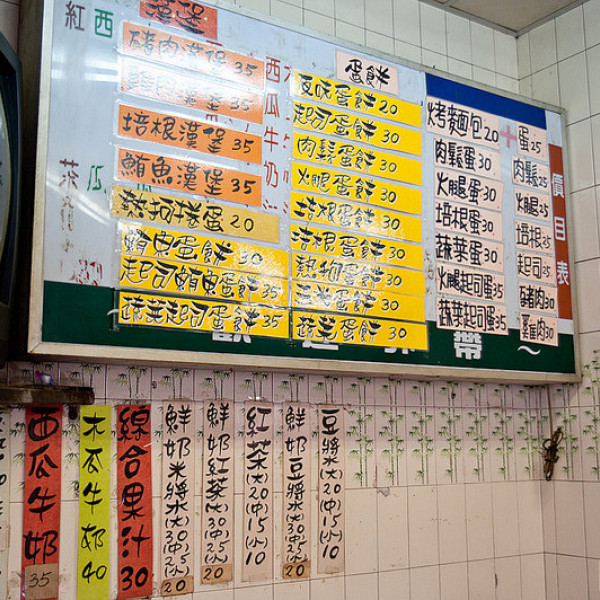 漢堡
豬肉漢堡35
雞肉漢堡35
培根漢堡35
鮪魚漢堡35
熱狗捲蛋20
鮪魚蛋餅30
起司鮪魚蛋餅35
蔬菜起司蛋餅35
蛋餅
原味蛋餅20
起司蛋餅30
肉鬆蛋餅30
火腿蛋餅30
培根蛋餅30
熱狗蛋餅30
玉米蛋餅30
蔬菜蛋餅30
烤麵包20
肉鬆蛋30
火腿蛋30
培根蛋30
蔬菜蛋30
火腿起司蛋35
蔬菜起司蛋35
+蛋25
肉鬆25
火腿25
培根25
起司25
豬肉30
雞肉30
價目表
紅
西
茶
瓜
西瓜牛奶
歡迎外帶
西瓜牛奶35
木瓜牛奶40
綜合果汁30
鮮奶米漿(大)30(中)25(小)20
鮮奶紅茶(大)30(中)25(小)20
紅茶(大)20(中)15(小)10
鮮奶豆漿(大)30(中)25(小)20
豆漿(大)20(中)15(小)10